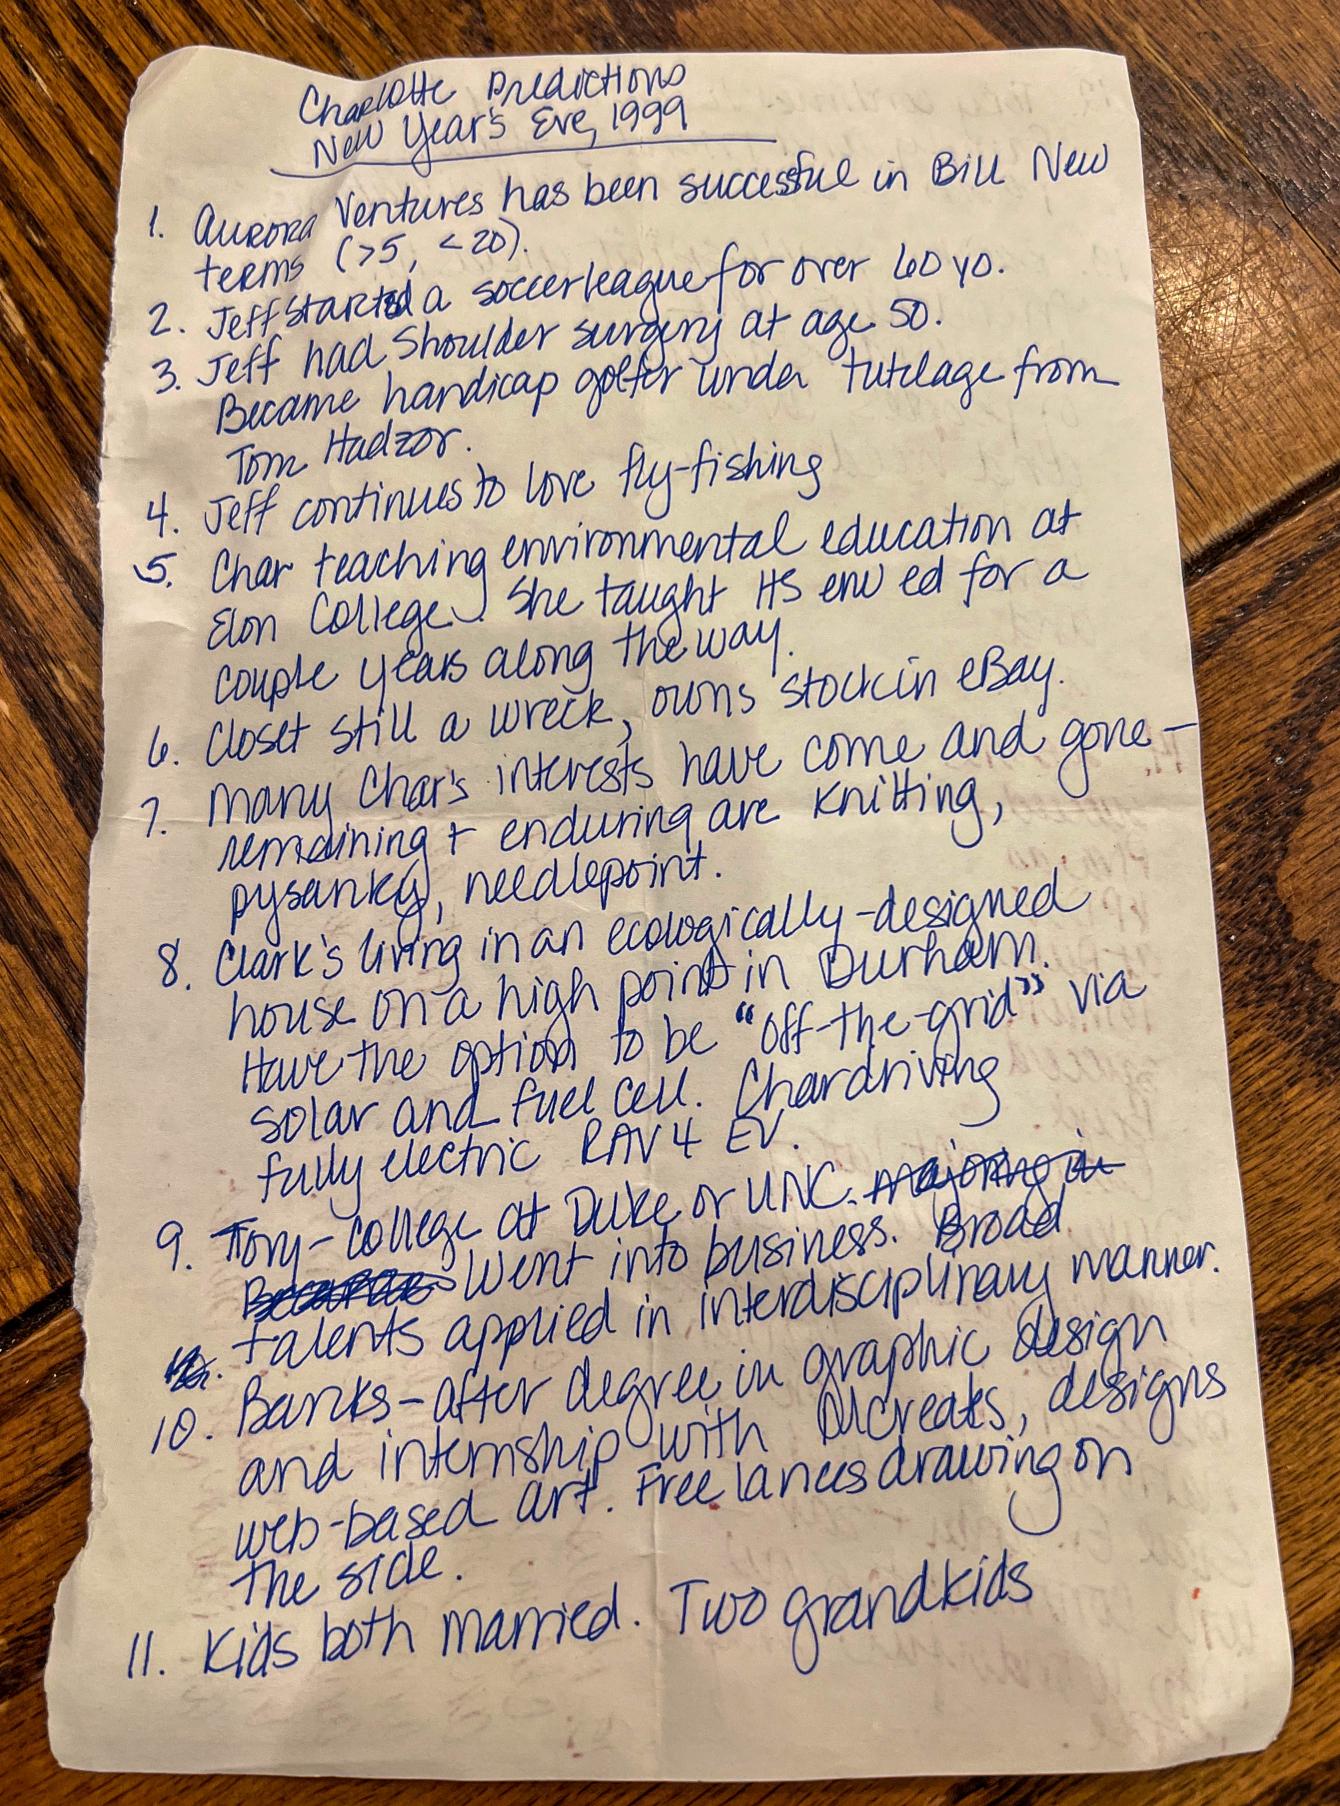 Charlotte Predictions
New Year's Eve, 1999
1. Aurora Ventures has been successful in Bill New
terms (>5, <20).
2. Jeff started a soccer league for over 60 yo.
3. Jeff had shoulder surgery at age 50.
Became handicap golfer under tutelage from
Tom Hadzor.
4. Jeff continues to love fly-fishing
5. Char teaching environmental education at
Elon College. She taught HS env ed for a
couple years along the way.
6. Closet still a wreck, owns stock in eBay.
7. Many Char's interests have come and gone -
remaining + enduring are knitting,
pysanky, needlepoint.
8. Clark's living in an ecologically-designed
house on a high point in Durham.
Have the option to be "off-the-grid" via
solar and fuel cell. Char driving
fully electric RAV4 EV.
9. Tory - college at Duke or UNC. majoring in
Went into business. Broad
talents applied in interdisciplinary manner.
10. Banks - after degree in graphic design
and internship with DLCreates, designs
web-based art. Free lances drawing on
the side.
11. Kids both married. Two grandkids